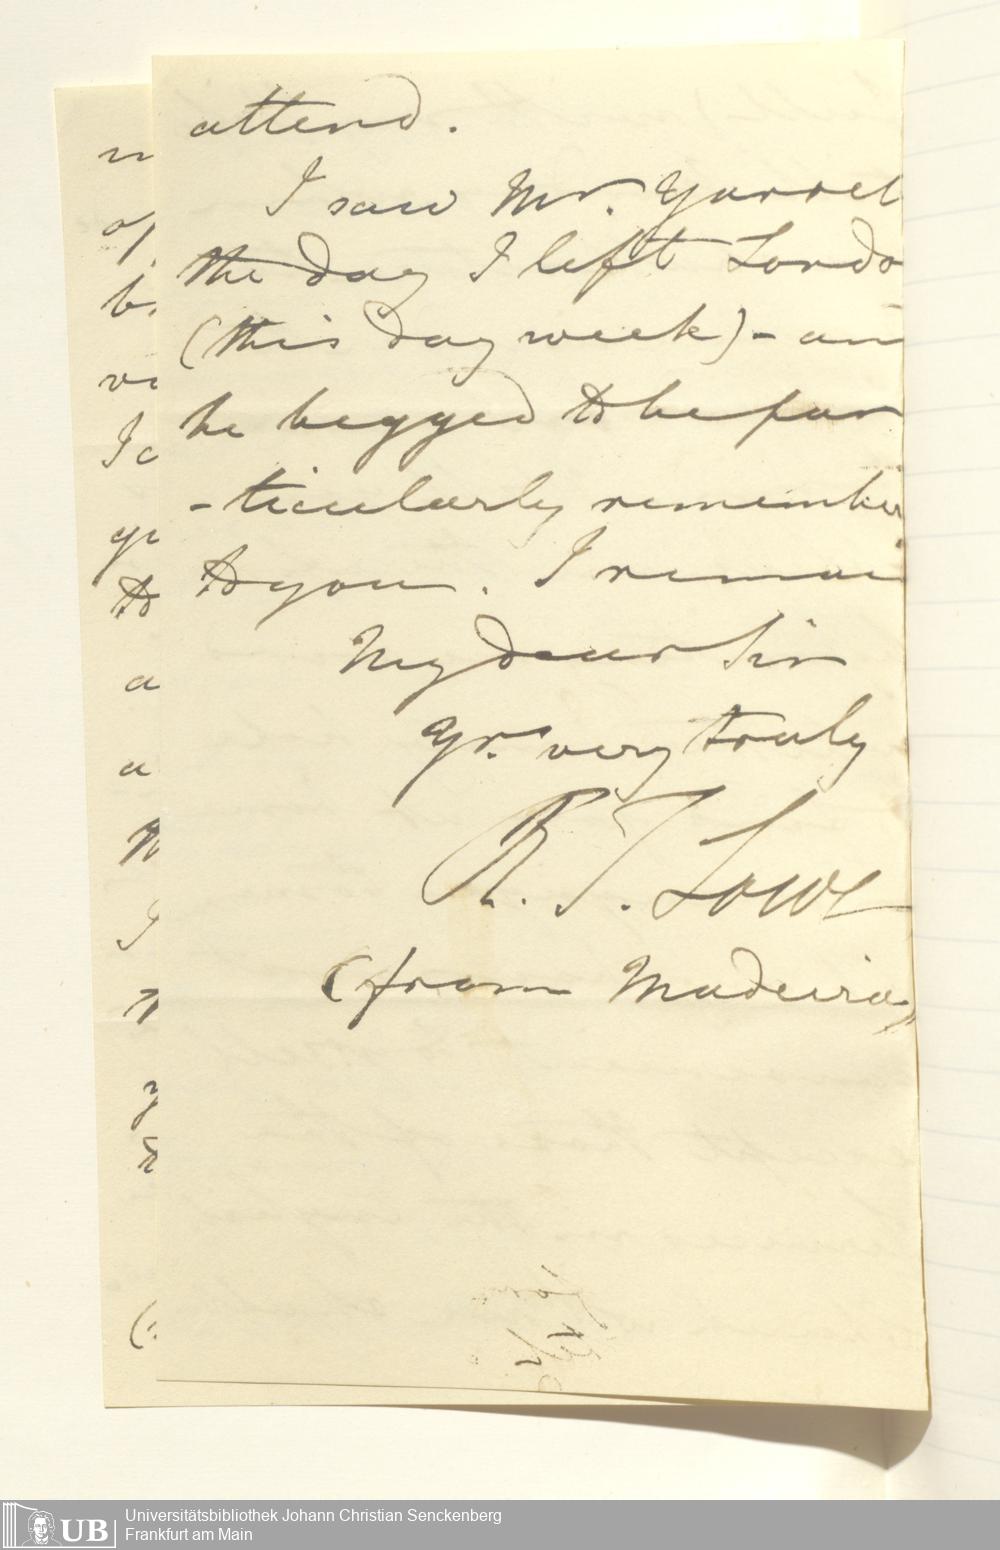 attend.
I saw Mr. Yarrel
the day I left Londo
(this day week) - an
he begged to be par
-ticularly remember
to you. I remai
My dear Sir
Yrs. very truly
R. T. Lowe
(from Madeira)
UB
Universitätsbibliothek Johann Christian Senckenberg
Frankfurt am Main